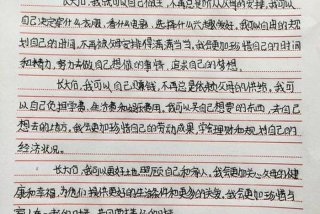 长大后,我就可以自己做主,不再总是听从父母的安排,我可以
自己决定穿什么衣服,看什么电影,选择什么兴趣爱好,我可以自由的规
划自己的时间,不再被父母安排得满满当当,我会更加珍惜自己的时间
和精力,努力去做自己想做的事情,追求自己的梦想。
长大后,我可以自己赚钱,不再总是依赖父母的供给,我可
以自己负担学费、生活费和娱乐费用,我可以买自己想要的东西,去自己
想去的地方,我会更加珍惜自己的劳动成果,学会理财和规划自己的
经济状况。
长大后,我可以更好地照顾自己和家人,我会更加关心父母的健
康和幸福,为他们提供更好的生活条件和更多的关爱,我会更加珍惜与